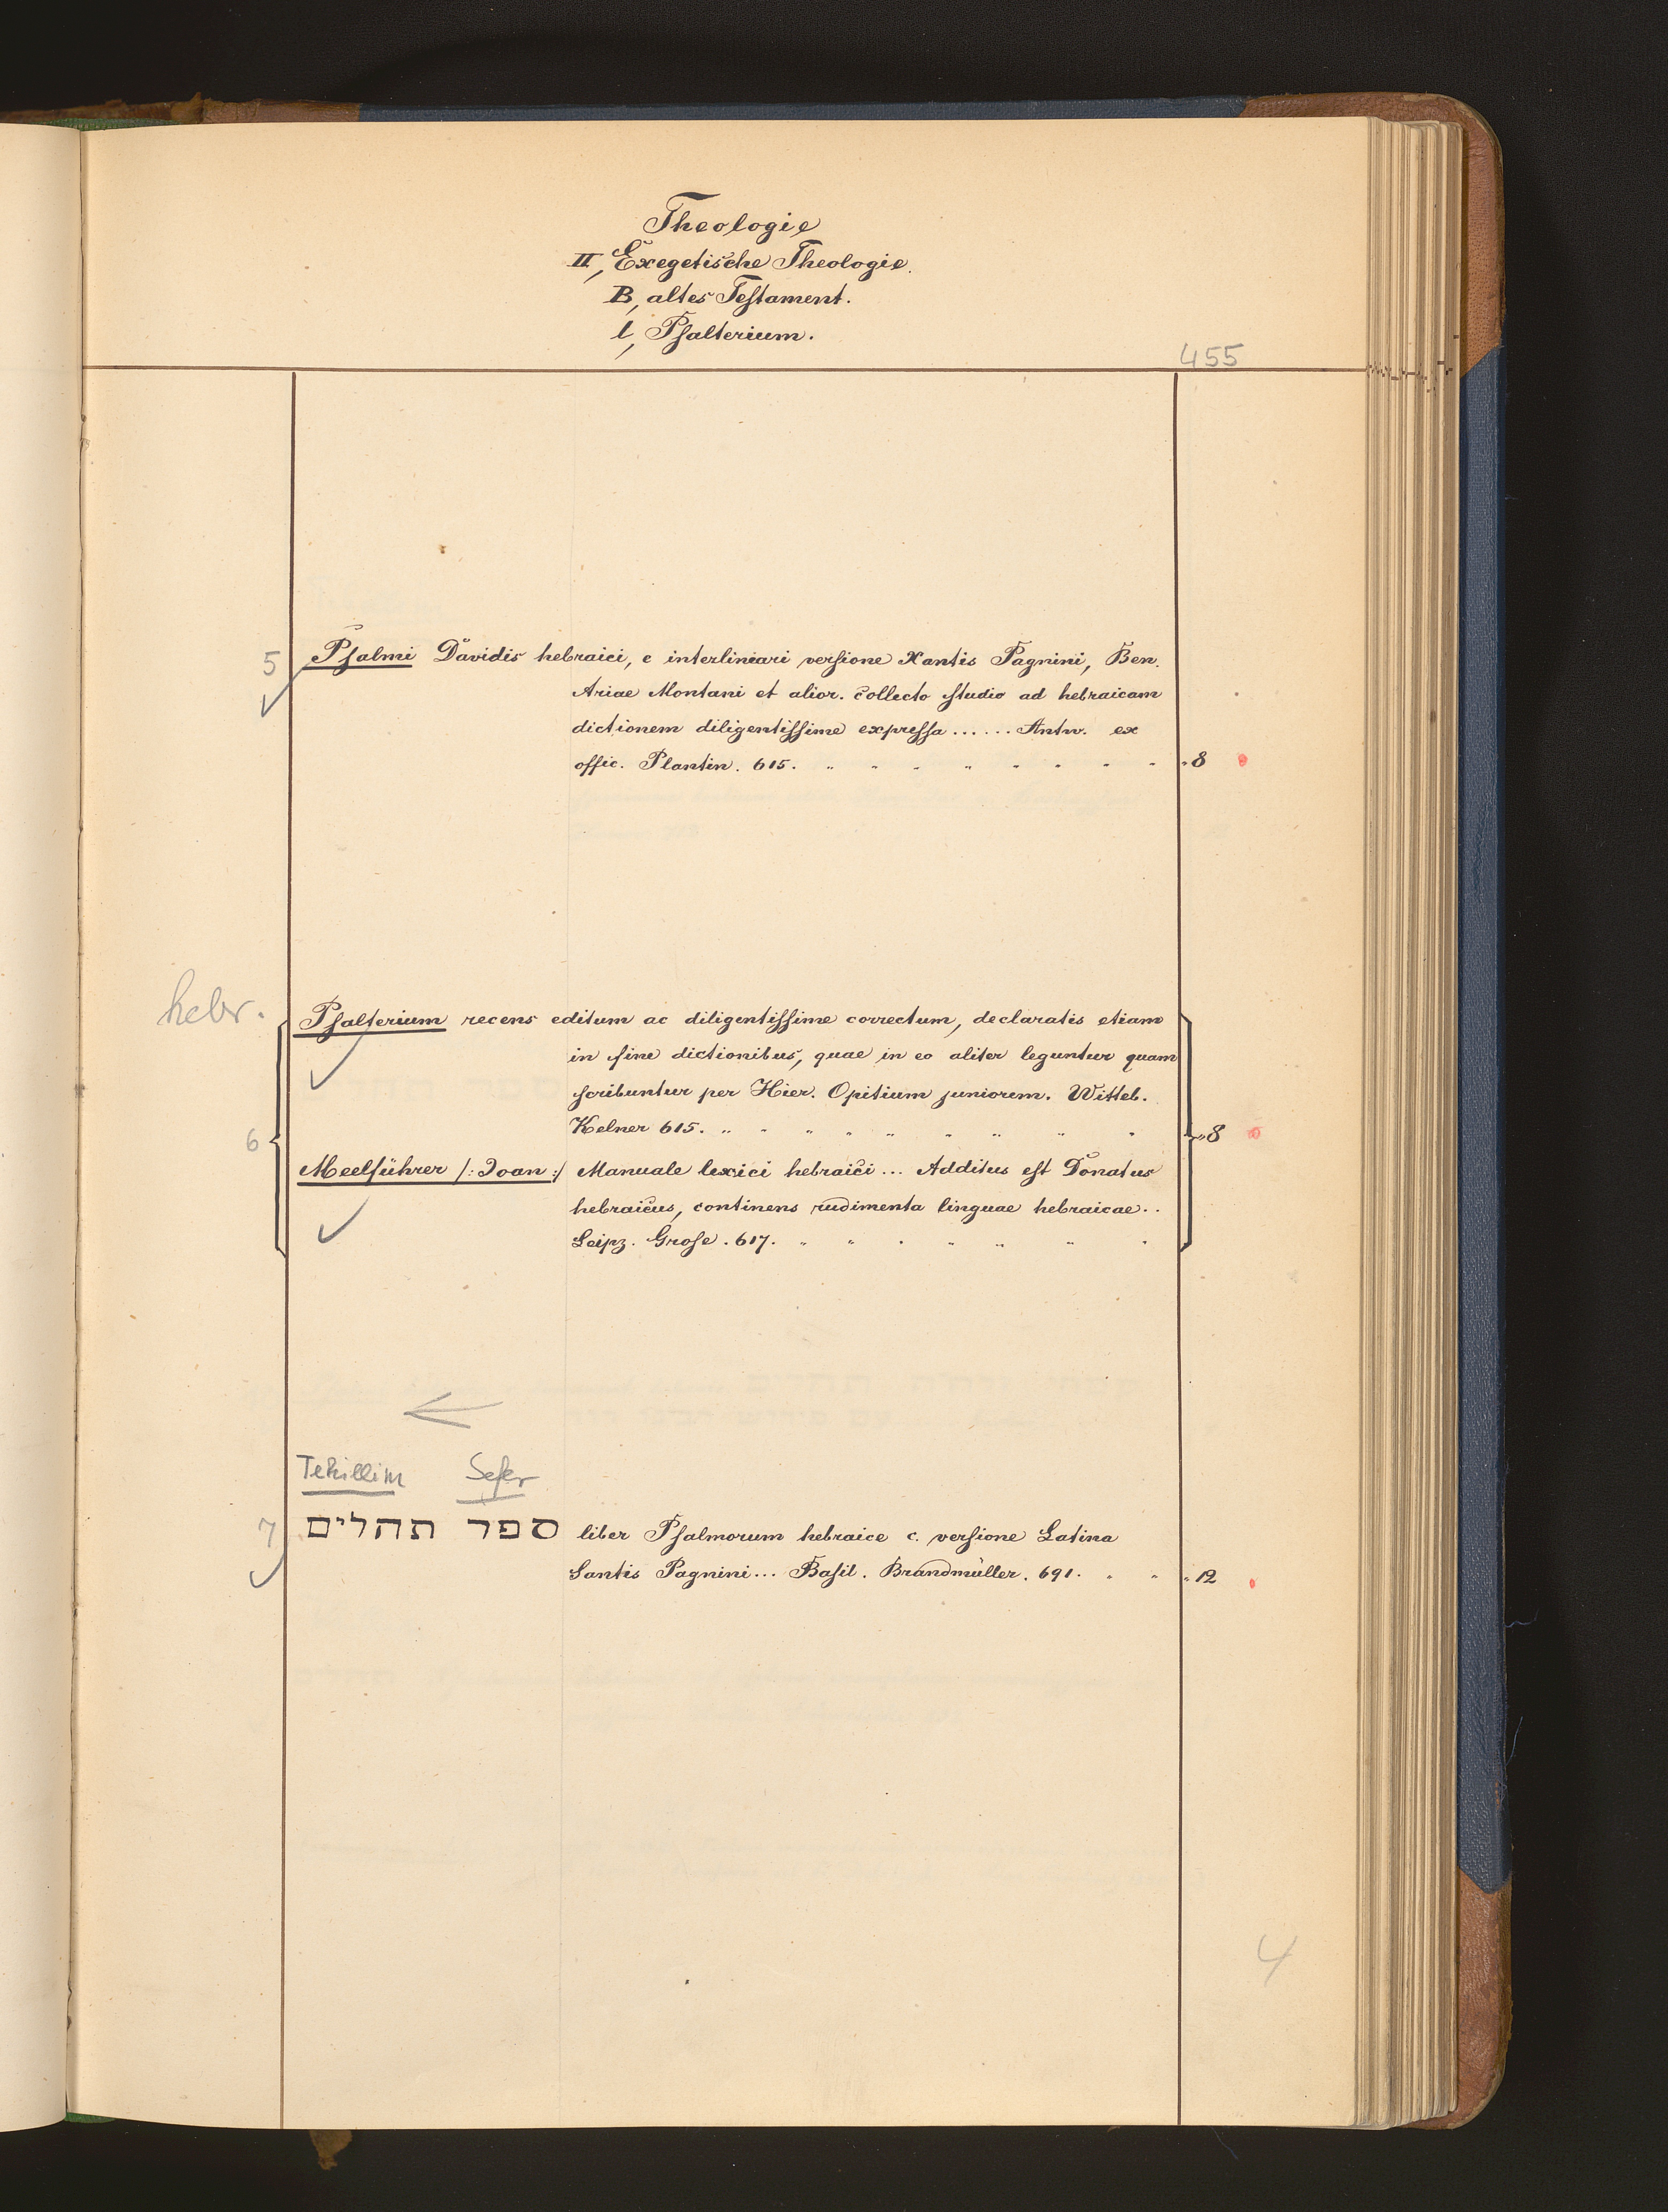 Theologie
II, Exegetische Theologie.
B, altes Testament.
l, Psalterium.
455
5 Psalmi Davidis hebraici, c interliniari versione Xantis Pagnini, Ben.
Ariae Montani et alior. collecto studio ad hebraicam
dictionem diligentissime expressa ...... Antw. ex
offic. Plantin. 615. „ „ „ „ „ „ „ „ „ 8
hebr.
Psalterium recens editum ac diligentissime correctum, declaratis etiam
in fine dictionibus, quae in eo aliter leguntur quam
scribuntur per Hier. Opitium juniorem. Witteb.
Kelner 615. „ „ „ „ „ „ „ „ „
6 „ 8
Meelführer /: Joan :/ Manuale lexici hebraici ... Additus est Donatus
hebraicus, continens rudimenta linguae hebraicae ..
Leipz. Grose. 617. „ „ „ „ „ „ „
Tehillim Sefer
7 ספר תהלים liber Psalmorum hebraice c. versione Latina
Santis Pagnini ... Basil. Brandmüller. 691. „ „ „ 12
4